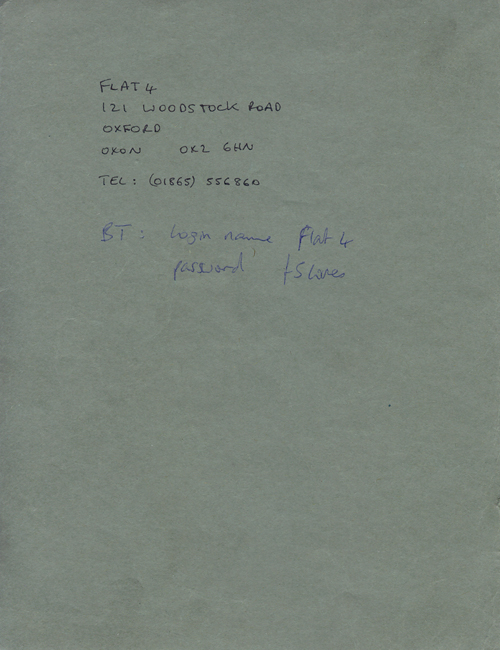 FLAT 4
121 WOODSTOCK ROAD
OXFORD
OXON OX2 6HN
TEL: (01865) 556860
BT: Login name Flat 4
password